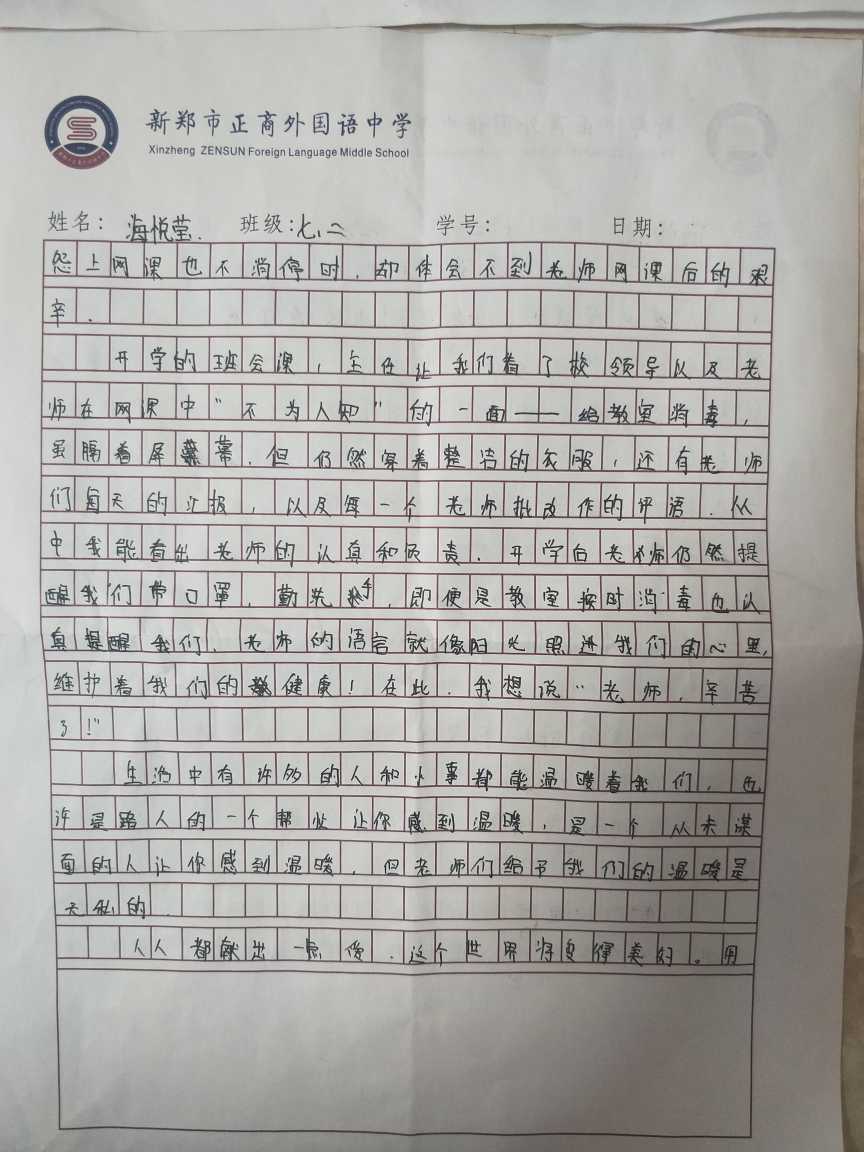 新郑市正商外国语中学
Xinzheng ZENSUN Foreign Language Middle School
姓名: 海悦莹. 班级:七、二 学号: 日期:
怨上网课也不消停时，却体会不到老师网课后的艰
辛.
开学的班会课，主任让我们看了校领导以及老
师在网课中“不为人知”的一面——给教室消毒，
虽隔着屏幕.但仍然穿着整洁的衣服，还有老师
们每天的汇报，以及每一个老师批改作的评语.从
中我能看出老师的认真和负责.开学后老师仍然提
醒我们带口罩，勤洗手，即便是教室按时消毒也认
真提醒我们.老师的语言就像阳光照进我们的心里,
维护着我们的健康！在此.我想说“老师，辛苦
了!”
生活中有许多的人和小事都能温暖着我们，也
许是路人的一个帮忙让你感到温暖，是一个从未谋
面的人让你感到温暖，但老师们给予我们的温暖是
无私的.
人人都献出一点爱.这个世界将变得美好。用